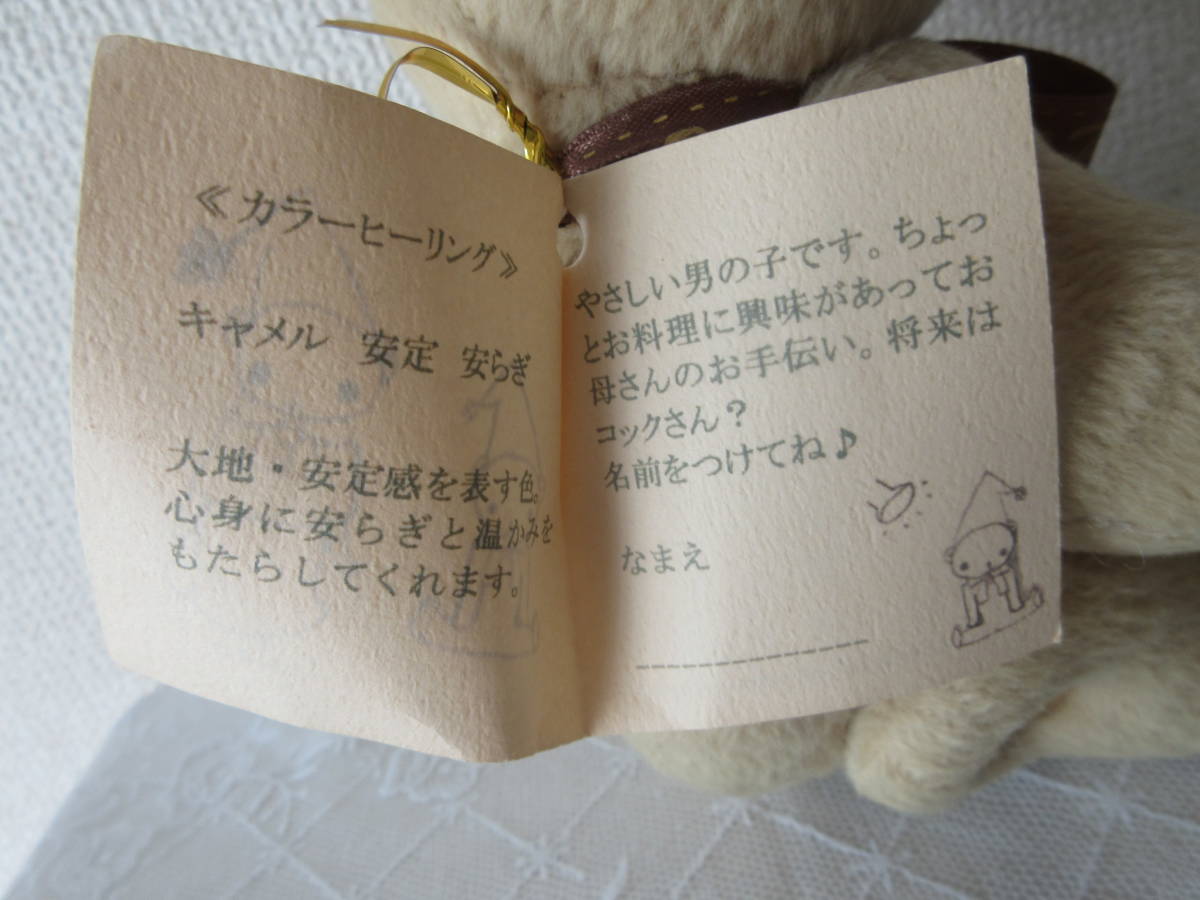 《カラーヒーリング》
キャメル　安定　安らぎ
大地・安定感を表す色。
心身に安らぎと温かみを
もたらしてくれます。
やさしい男の子です。ちょっ
とお料理に興味があってお
母さんのお手伝い。将来は
コックさん？
名前をつけてね♪
なまえ